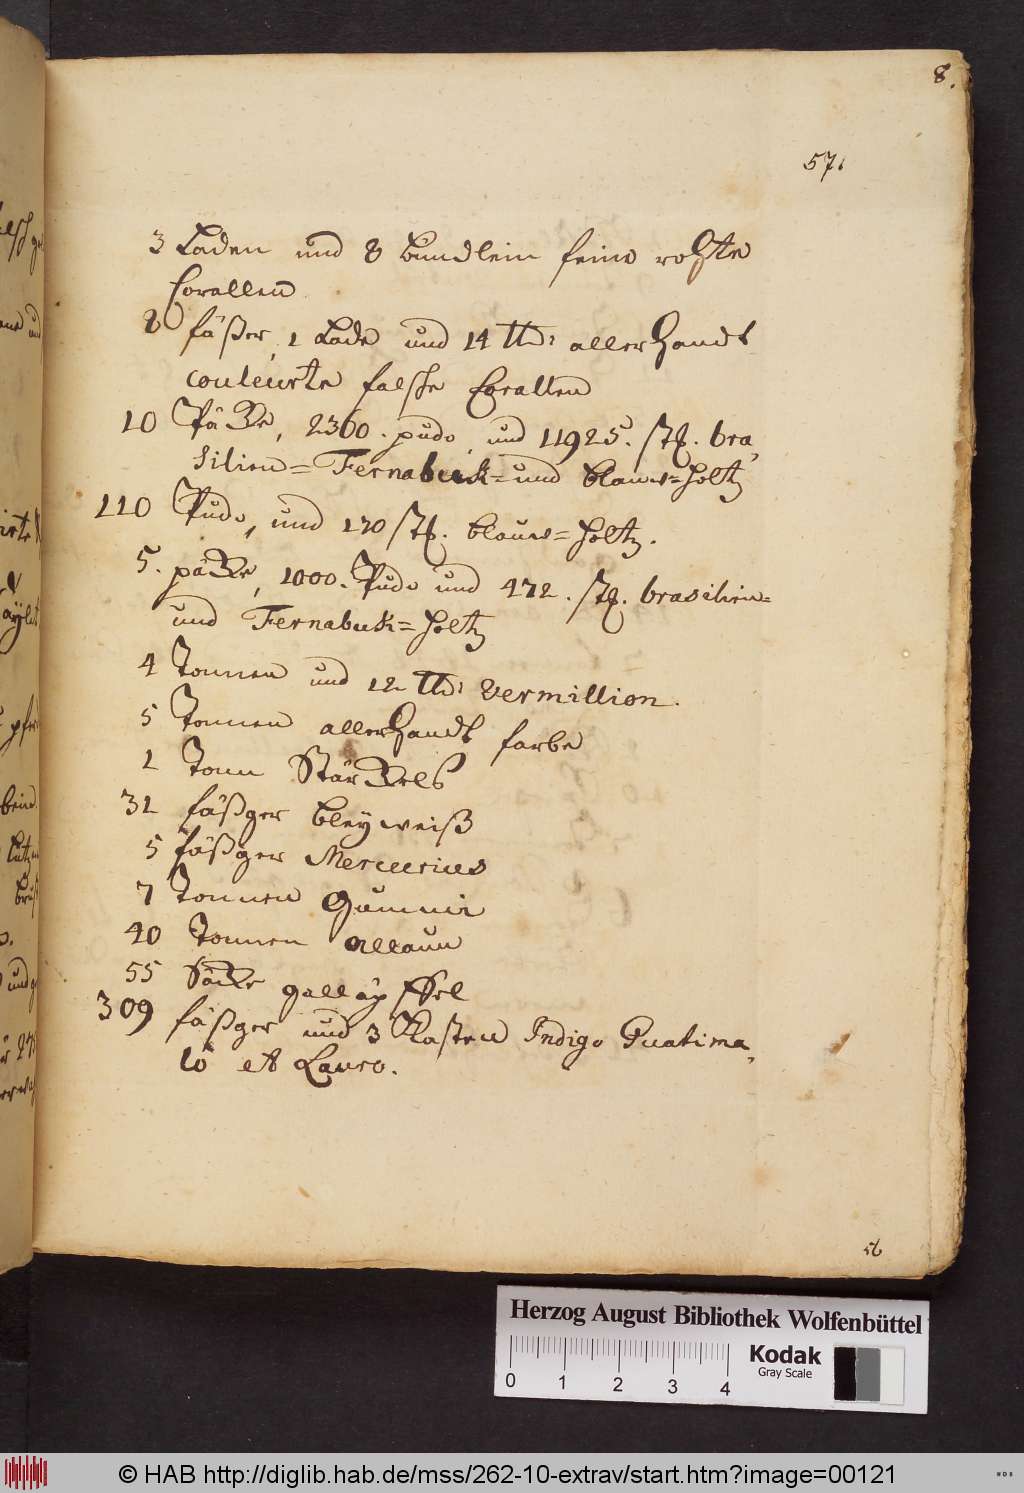 8.
57.
3 Laden und 8 bundlein feine rohte
Corallen
8 fäßer, 1 Lade und 14 ℔: allerhandt
couleurte falsche Corallen
10 Päcke, 2360. pudo, und 11925. stk. bra,
silien= Fernabuck= und blauw=holtz
110 Pudo, und 170 stk. blauw=holtz.
5. päcke, 1000. Pudo und 472. stk. brasilien=
und Fernabuck=holtz
4 Tonnen und 12 ℔: Vermillion.
5 Tonnen allerhandt farbe
1 Tonn Stärckels
32 fäßger bleyweiß
5 fäßger Mercurius
7 Tonnen Gummi
40 Tonnen Allaun
55 Säcke galläpffel
309 fäßger und 3 Kasten Indigo Guatima,
lo et Lauro.
56
Herzog August Bibliothek Wolfenbüttel
0 1 2 3 4
Kodak
Gray Scale
© HAB http://diglib.hab.de/mss/262-10-extrav/start.htm?image=00121